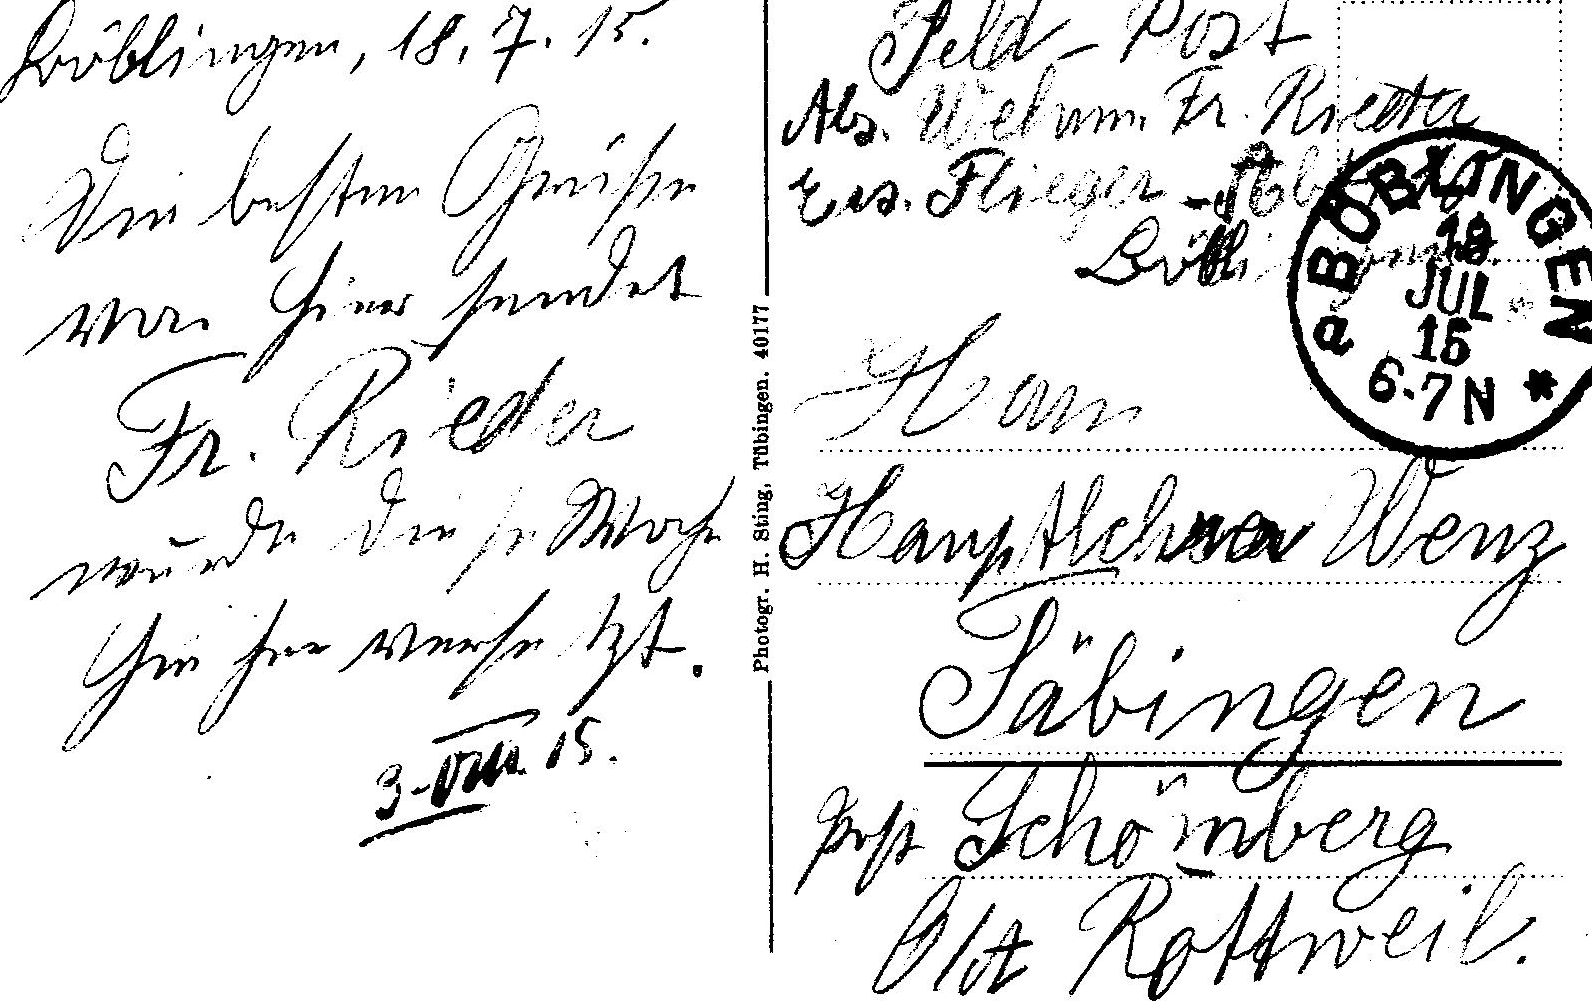 Böblingen, 18. 7. 15.
Die besten Grüße
von hier sendet
Fr. Rieder
wurde diese Woche
hierher versetzt.
3. VIII. 15.
Photogr. H. Sting, Tübingen. 40177
Feld-Post
Abs. Wehrm. Fr. Rieder
Ers. Flieger-Abt.
Böblingen.
BÖBLINGEN
18
JUL
15
6-7N *
a
Herrn
Hauptlehrer Wenz
Täbingen
Post Schömberg
O/A Rottweil.